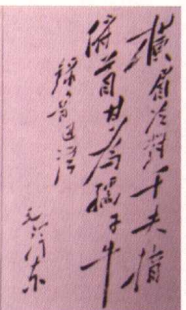 横眉冷对千夫指
俯首甘为孺子牛
鲁迅
毛泽东